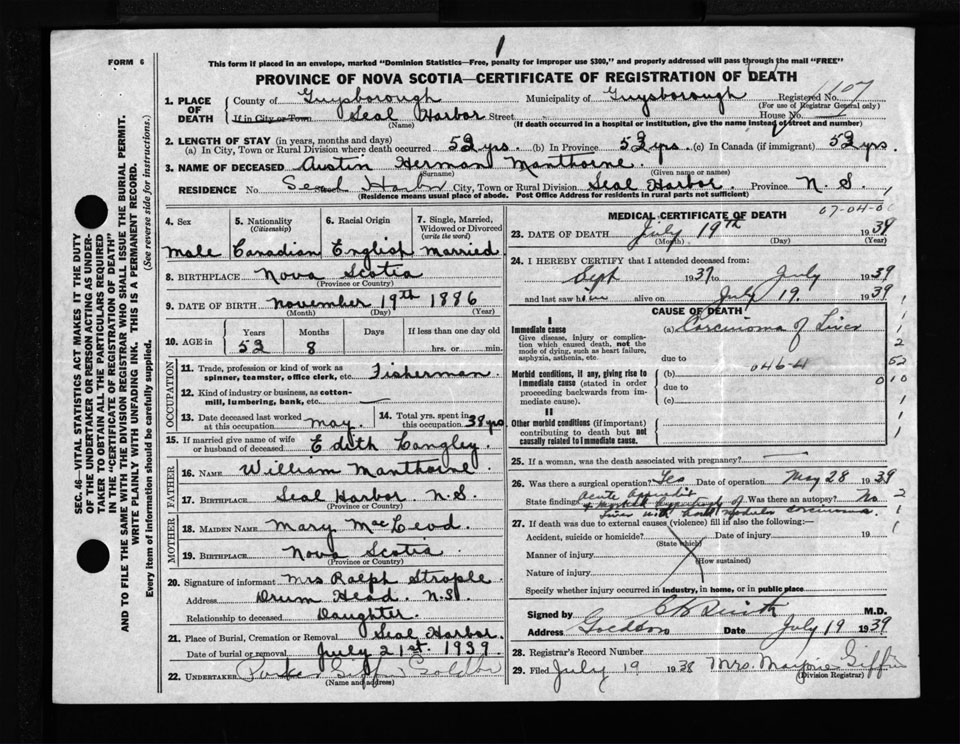 1
FORM 6
This form if placed in an envelope, marked "Dominion Statistics—Free, penalty for improper use $300," and properly addressed will pass through the mail "FREE"
PROVINCE OF NOVA SCOTIA—CERTIFICATE OF REGISTRATION OF DEATH
SEC. 46—VITAL STATISTICS ACT MAKES IT THE DUTY
OF THE UNDERTAKER OR PERSON ACTING AS UNDER-
TAKER TO OBTAIN ALL THE PARTICULARS REQUIRED
IN THE "CERTIFICATE OF REGISTRATION OF DEATH"
AND TO FILE THE SAME WITH THE DIVISION REGISTRAR WHO SHALL ISSUE THE BURIAL PERMIT.
WRITE PLAINLY WITH UNFADING INK. THIS IS A PERMANENT RECORD.
Every item of information should be carefully supplied. (See reverse side for instructions.)
1. PLACE OF DEATH County of Guysborough Municipality of Guysborough Registered No. 1407
(For use of Registrar General only)
If in City or Town Seal Harbor Street House No.
(Name) (If death occurred in a hospital or institution, give the name instead of street and number)
2. LENGTH OF STAY (in years, months and days)
(a) In City, Town or Rural Division where death occurred 52 yrs. (b) In Province 52 yrs. (c) In Canada (if immigrant) 52 yrs.
3. NAME OF DECEASED Austin Herman Manthorne.
(Surname) (Given name or names)
RESIDENCE No. Seal Harbor City, Town or Rural Division Seal Harbor. Province N. S.
(Residence means usual place of abode. Post Office Address for residents in rural parts not sufficient)
4. Sex 5. Nationality 6. Racial Origin 7. Single, Married, Widowed or Divorced
(Citizenship) (write the word)
Male Canadian English Married
8. BIRTHPLACE Nova Scotia
(Province or Country)
9. DATE OF BIRTH November 19th 1886
(Month) (Day) (Year)
10. AGE in Years Months Days If less than one day old
52 8 hrs. or min.
OCCUPATION
11. Trade, profession or kind of work as spinner, teamster, office clerk, etc. Fisherman
12. Kind of industry or business, as cotton-mill, lumbering, bank, etc.
13. Date deceased last worked at this occupation May. 14. Total yrs. spent in this occupation 38 yrs
15. If married give name of wife or husband of deceased Edith Langley
FATHER
16. NAME William Manthorne
17. BIRTHPLACE Seal Harbor N.S.
(Province or Country)
MOTHER
18. MAIDEN NAME Mary MacLeod
19. BIRTHPLACE Nova Scotia
(Province or Country)
20. Signature of informant Mrs Ralph Strople
Address Drum Head. N.S.
Relationship to deceased Daughter.
21. Place of Burial, Cremation or Removal Seal Harbor.
Date of burial or removal July 21st. 1939.
22. UNDERTAKER Giffin
(Name and address)
MEDICAL CERTIFICATE OF DEATH
07-04-0
23. DATE OF DEATH July 19th 1939
(Month) (Day) (Year)
24. I HEREBY CERTIFY that I attended deceased from:
Sept 1937 to July 1939
and last saw him alive on July 19. 1939
CAUSE OF DEATH
I
Immediate cause (a) Carcinoma of Liver
Give disease, injury or complication which caused death, not the mode of dying, such as heart failure, asphyxia, asthenia, etc.
due to
Morbid conditions, if any, giving rise to immediate cause (stated in order proceeding backwards from immediate cause). (b) 046-4
due to
(c)
II
Other morbid conditions (if important) contributing to death but not causally related to immediate cause.
1
2
52
010
25. If a woman, was the death associated with pregnancy?
26. Was there a surgical operation? Yes Date of operation May 28 1939
State findings Acute Was there an autopsy? No
Liver with nodular carcinoma.
27. If death was due to external causes (violence) fill in also the following:—
Accident, suicide or homicide? Date of injury 19
(State which)
Manner of injury
(How sustained)
Nature of injury
Specify whether injury occurred in industry, in home, or in public place
Signed by M.D.
Address Goldboro Date July 19 1939.
28. Registrar's Record Number
29. Filed July 19 1938 Mrs. Marjorie Giffin
(Division Registrar)